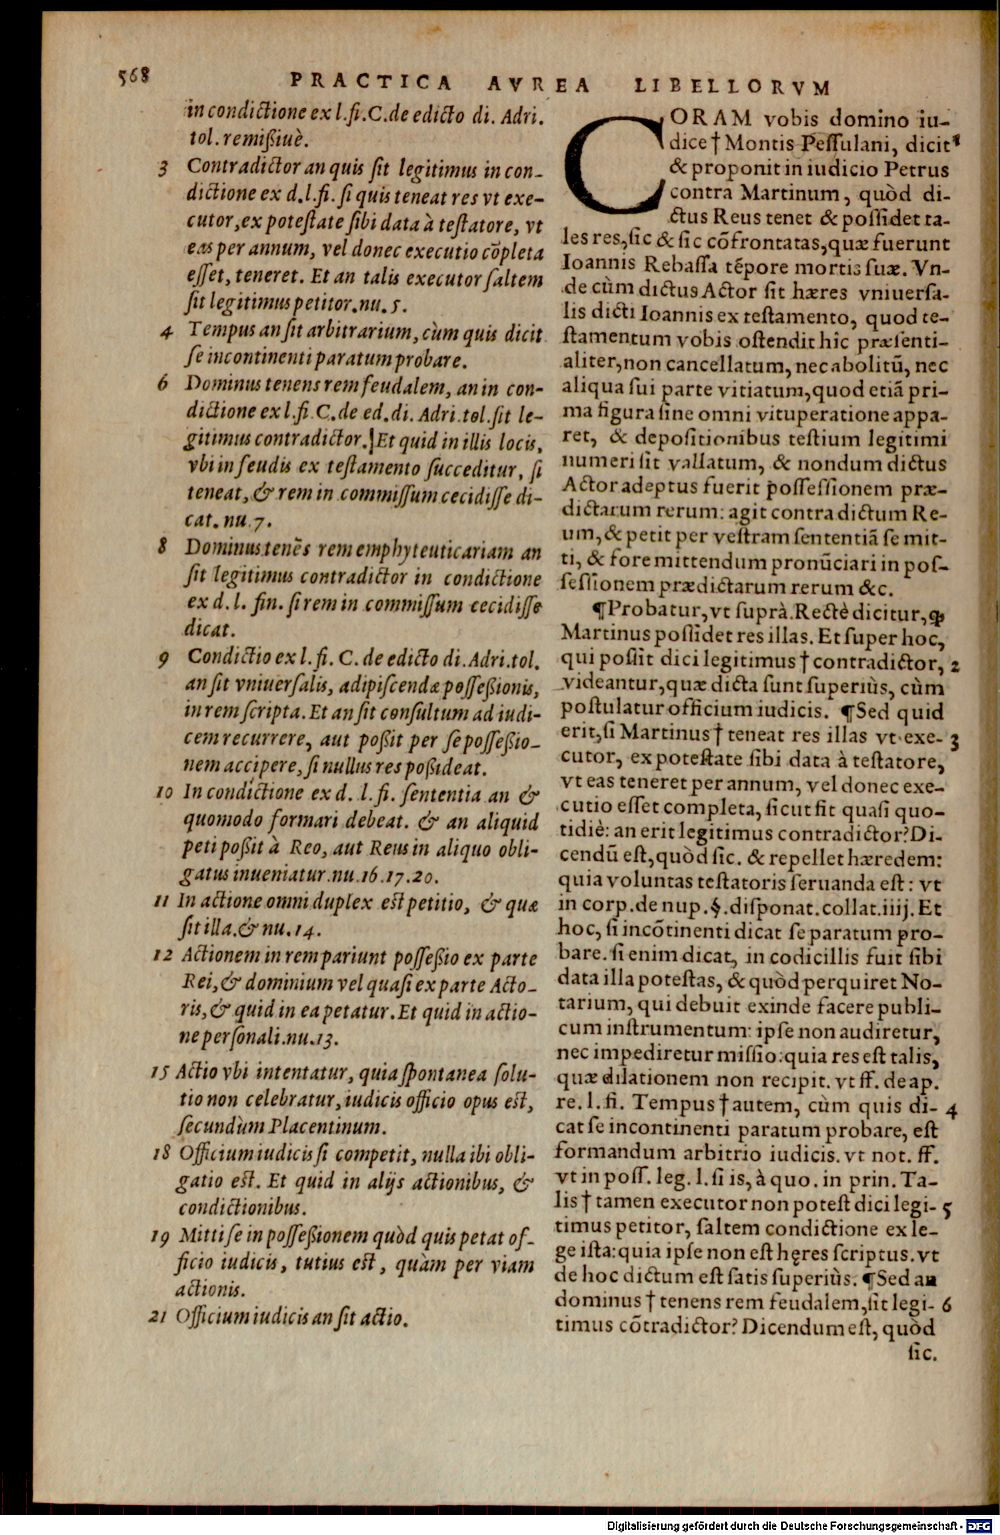 568
PRACTICA AVREA LIBELLORVM
in condictione ex l.fi.C.de edicto di. Adri.
tol. remißiuè.
3 Contradictor an quis ſit legitimus in con-
dictione ex d.l.fi. ſi quis teneat res vt exe-
cutor, ex poteſtate ſibi data à teſtatore, vt
eas per annum, vel donec executio cõpleta
eſſet, teneret. Et an talis executor ſaltem
ſit legitimus petitor.nu. 5.
4 Tempus an ſit arbitrarium, cùm quis dicit
ſe incontinenti paratum probare.
6 Dominus tenens rem feudalem, an in con-
dictione ex l.fi C.de ed.di. Adri.tol.ſit le-
gitimus contradictor. Et quid in illis locis,
vbi in feudis ex teſtamento ſucceditur, ſi
teneat, & rem in commiſſum cecidiſſe di-
cat. nu.7.
8 Dominus tenẽs rem emphyteuticariam an
ſit legitimus contradictor in condictione
ex d. l. fin. ſi rem in commiſſum cecidiſſe
dicat.
9 Condictio ex l. fi. C. de edicto di. Adri.tol.
an ſit vniuerſalis, adipiſcendæ poſſeßionis,
in rem ſcripta. Et an ſit conſultum ad iudi-
cem recurrere, aut poßit per ſe poſſeßio-
nem accipere, ſi nullus res poßideat.
10 In condictione ex d. l. fi. ſententia an &
quomodo formari debeat. & an aliquid
peti poßit à Reo, aut Reus in aliquo obli-
gatus inueniatur.nu.16.17.20.
11 In actione omni duplex eſt petitio, & quæ
ſit illa.& nu.14.
12 Actionem in rem pariunt poſſeßio ex parte
Rei, & dominium vel quaſi ex parte Acto-
ris, & quid in ea petatur. Et quid in actio-
ne perſonali.nu.13.
15 Actio vbi intentatur, quia ſpontanea ſolu-
tio non celebratur, iudicis officio opus eſt,
ſecundùm Placentinum.
18 Officium iudicis ſi competit, nulla ibi obli-
gatio eſt. Et quid in alijs actionibus, &
condictionibus.
19 Mitti ſe in poſſeßionem quòd quis petat of-
ficio iudicis, tutius eſt, quàm per viam
actionis.
21 Officium iudicis an ſit actio.
CORAM vobis domino iu-
dice † Montis Peſſulani, dicit 1
& proponit in iudicio Petrus
contra Martinum, quòd di-
ctus Reus tenet & poſſidet ta-
les res, ſic & ſic cõfrontatas, quæ fuerunt
Ioannis Rebaſſa tẽpore mortis ſuæ. Vn-
de cùm dictus Actor ſit hæres vniuerſa-
lis dicti Ioannis ex teſtamento, quod te-
ſtamentum vobis oſtendit hîc præſenti-
aliter, non cancellatum, nec abolitũ, nec
aliqua ſui parte vitiatum, quod etiã pri-
ma figura ſine omni vituperatione appa-
ret, & depoſitionibus teſtium legitimi
numeri ſit vallatum, & nondum dictus
Actor adeptus fuerit poſſeſſionem præ-
dictarum rerum: agit contra dictum Re-
um, & petit per veſtram ſententiã ſe mit-
ti, & fore mittendum pronũciari in poſ-
ſeſſionem prædictarum rerum &c.
¶Probatur, vt ſuprà. Rectè dicitur, ꝙ
Martinus poſſidet res illas. Et ſuper hoc,
qui poſſit dici legitimus † contradictor, 2
videantur, quæ dicta ſunt ſuperiùs, cùm
poſtulatur officium iudicis. ¶Sed quid
erit, ſi Martinus † teneat res illas vt exe- 3
cutor, ex poteſtate ſibi data à teſtatore,
vt eas teneret per annum, vel donec exe-
cutio eſſet completa, ſicut fit quaſi quo-
tidiè: an erit legitimus contradictor? Di-
cendũ eſt, quòd ſic. & repellet hæredem:
quia voluntas teſtatoris ſeruanda eſt: vt
in corp. de nup. §. diſponat. collat. iiij. Et
hoc, ſi incõtinenti dicat ſe paratum pro-
bare. ſi enim dicat, in codicillis fuit ſibi
data illa poteſtas, & quòd perquiret No-
tarium, qui debuit exinde facere publi-
cum inſtrumentum: ipſe non audiretur,
nec impediretur miſſio: quia res eſt talis,
quæ dilationem non recipit. vt ff. de ap.
re. l. fi. Tempus † autem, cùm quis di- 4
cat ſe incontinenti paratum probare, eſt
formandum arbitrio iudicis. vt not. ff.
vt in poſſ. leg. l. ſi is, à quo. in prin. Ta-
lis † tamen executor non poteſt dici legi- 5
timus petitor, ſaltem condictione ex le-
ge iſta: quia ipſe non eſt hęres ſcriptus. vt
de hoc dictum eſt ſatis ſuperiùs. ¶Sed an
dominus † tenens rem feudalem, ſit legi- 6
timus cõtradictor? Dicendum eſt, quòd
ſic.
Digitalisierung gefördert durch die Deutsche Forschungsgemeinschaft - DFG